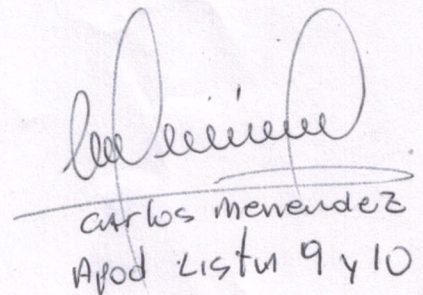 Carlos Menendez
Apod Lista 9 y 10